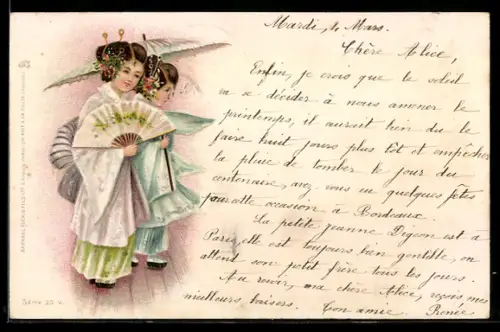 Mardi, 4 Mars.
Chère Alice,
Enfin, je crois que le soleil
va se décider à nous amener le
printemps, il aurait bien du le
faire huit jours plus tôt et empêcher
la pluie de tomber le jour du
centenaire, avez vous eu quelques fêtes
pour cette occasion à Bordeaux.
La petite Jeanne Digeon est à
Paris, elle est toujours bien gentille, on
attend son petit frère tous les jours.
Au revoir, ma chère Alice, reçois mes
meilleurs baisers. Ton amie. Renée
RAPHAEL TUCK & FILS
Série 25 V.